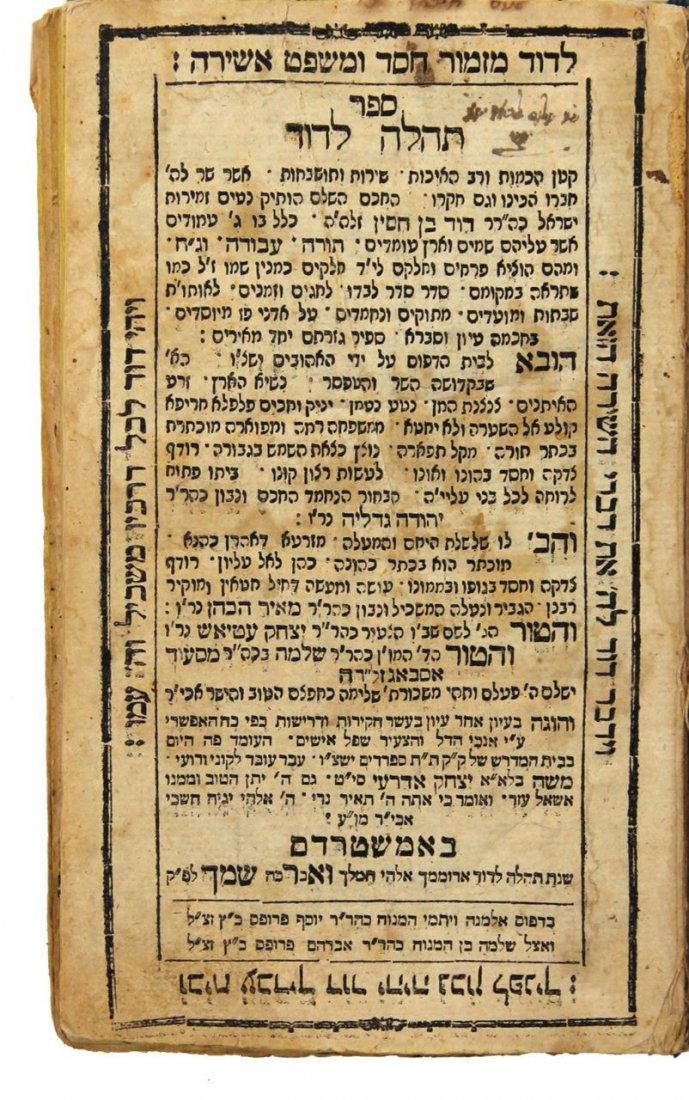 לדוד מזמור חסד ומשפט אשירה :
ספר
תהלה לדוד
קטן הכמות ורב האיכות · שירות ותושבחות · אשר שר לה'
חברו הכינו וגם חקרו · החכם השלם הותיק נעים זמירות
ישראל כה"רר דוד בן חסין זלה"ה · כלל בו ג' עמודים
אשר עליהם שמים וארץ עומדים · תורה · עבודה · וג"ח ·
ומהם הוציא פרחים וחלקם לי"ד חלקים כמנין שמו ז"ל כמו
שתראה במקומם · סדר סדר לבדו · לחגים וזמנים · לאותו"ת
שבתות ומועדים · מתוקים ונחמדים · על אדני פז מיוסדים ·
בחכמה עיון וסברא · ספיר גזרתם יחד מאירים :
הובא לבית הדפוס על ידי האהובים ישצ"ו · הא'
שבקדושה השר והטפסר · נשיא הארץ · זרע
האיתנים · צנצנת המן · נטע נעמן · יניק וחכים פלפלא חריפא
קולע אל השערה ולא יחטא · ממשפחה רמה ומפוארה מוכתרת
בכתר תורה · מקל תפארה · נוצץ כצאת השמש בגבורה · רודף
צדקה וחסד בהונו ואונו · לעשות רצון קונו · ביתו פתוח
לרוחה לכל בני עליי"ה · הבחור הנחמד החכם ונבון כהר"ר
יהודה גדליה נר"ו :
והב' לו שלשלת היחס והמעלה · מזרעא דאהרן כהנא ·
מוכתר הוא בכתר כהונה · כהן לאל עליון · רודף
צדקה וחסד בגופו ובממונו · עושה ומעשה דחיל חטאין ומוקיר
רבנן · הגביר ונעלה המשכיל ונבון כהר"ר מאיר הכהן נר"ו :
והטור הג' לשם שב"ו הצעיר כהר"ר יצחק עטיאש נר"ו
והטור הד' המו"ן כהר"ר שלמה בכה"ר מסעוד
אסבאג זלה"ה
ישלם ה' פעלם ותהי משכורת' שלימה כחפצם הטוב והישר אכי"ר
והוגה בעיון אחר עיון בעשר חקירות ודרישות כפי כח האפשרי
ע"י אנכי הדל והצעיר שפל אישים · העומד פה היום
בבית המדרש של ק"ק ת"ת ספרדים ישצ"ו · עבד עובד לקוני ורועי ·
משה בלא"א יצחק אדרעי סי"ט · גם ה' יתן הטוב וממנו
אשאל עזר · ואומר כי אתה ה' תאיר נרי · ה' אלהי יגיה חשכי
אכי"ר
באמשטרדם
שנת תהלה לדוד ארוממך אלהי המלך ואברכה שמך לפ"ק
בדפוס אלמנה ויתמי המנוח כהר"ר יוסף פרופס כ"ץ זצ"ל
ואצל שלמה בן המנוח כהר"ר אברהם פרופס כ"ץ זצ"ל
וידבר דוד לה' את דברי השירה הזאת :
ובית עבדיך דוד יהיה נכון לפניך :
ויהי דוד לכל דרכיו משכיל וה' עמו :